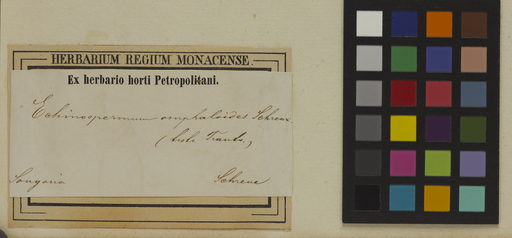 HERBARIUM REGIUM MONACENSE.
Ex herbario horti Petropolitani.
Echinospermum omphaloides Schrenk
(teste Trautv.)
Songoria Schrenk